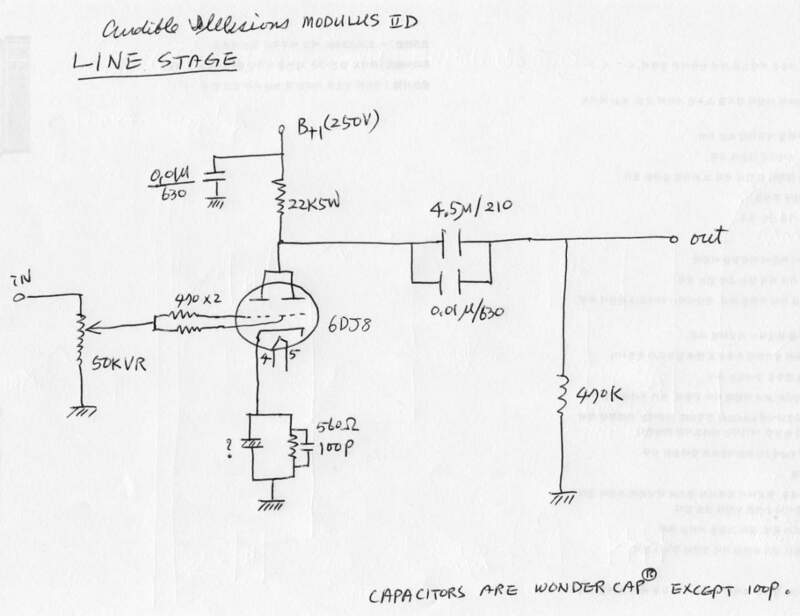 Audible Illusions MODULUS IID
LINE STAGE
B+1 (250V)
0.01μ/630
22K5W
4.5μ/210
out
0.01μ/630
IN
470 x 2
6DJ8
50KVR
4 5
560Ω
100P
?
470K
CAPACITORS ARE WONDER CAP® EXCEPT 100P.